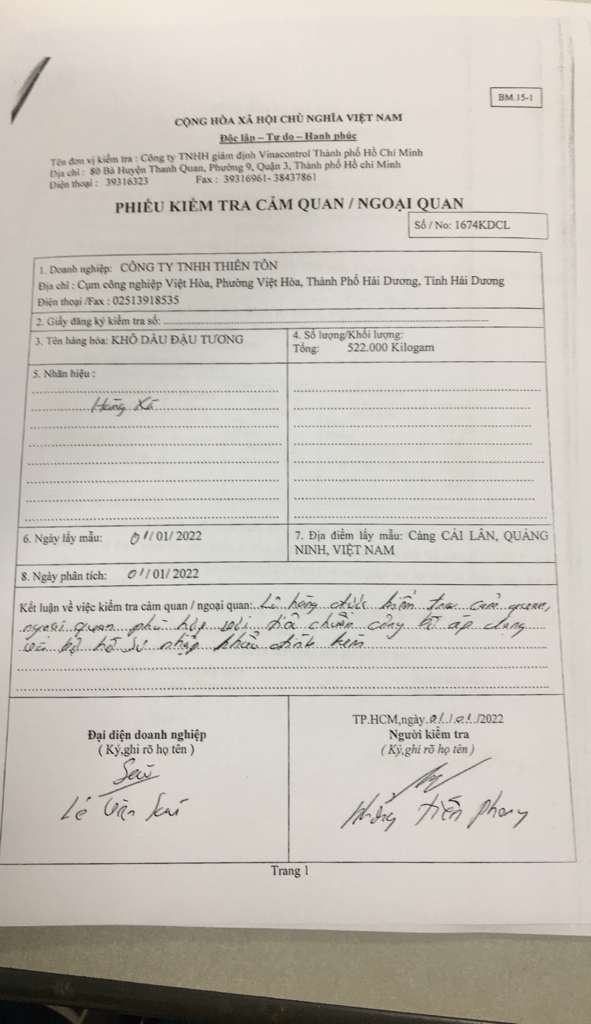 BM.15-1
CỘNG HÒA XÃ HỘI CHỦ NGHĨA VIỆT NAM
Độc lập – Tự do – Hạnh phúc
Tên đơn vị kiểm tra : Công ty TNHH giám định Vinacontrol Thành phố Hồ Chí Minh
Địa chỉ : 80 Bà Huyện Thanh Quan, Phường 9, Quận 3, Thành phố Hồ chí Minh
Điện thoại : 39316323 Fax : 39316961- 38437861
PHIẾU KIỂM TRA CẢM QUAN / NGOẠI QUAN
Số / No: 1674KDCL
1. Doanh nghiệp: CÔNG TY TNHH THIÊN TÔN
Địa chỉ : Cụm công nghiệp Việt Hòa, Phường Việt Hòa, Thành Phố Hải Dương, Tỉnh Hải Dương
Điện thoại /Fax : 02513918535
2. Giấy đăng ký kiểm tra số:
3. Tên hàng hóa: KHÔ DẦU ĐẬU TƯƠNG
4. Số lượng/Khối lượng:
Tổng: 522.000 Kilogam
5. Nhãn hiệu :
Hàng Xá
6. Ngày lấy mẫu: 01/01/2022
7. Địa điểm lấy mẫu: Cảng CÁI LÂN, QUẢNG
NINH, VIỆT NAM
8. Ngày phân tích: 01/01/2022
Kết luận về việc kiểm tra cảm quan / ngoại quan: Lô hàng được kiểm tra cảm quan,
ngoại quan phù hợp với tiêu chuẩn công bố áp dụng
và bộ hồ sơ nhập khẩu đính kèm
Đại diện doanh nghiệp
( Ký,ghi rõ họ tên )
Lê Văn
TP.HCM,ngày 01/01/2022
Người kiểm tra
( Ký,ghi rõ họ tên )
Tiến Phong
Trang 1